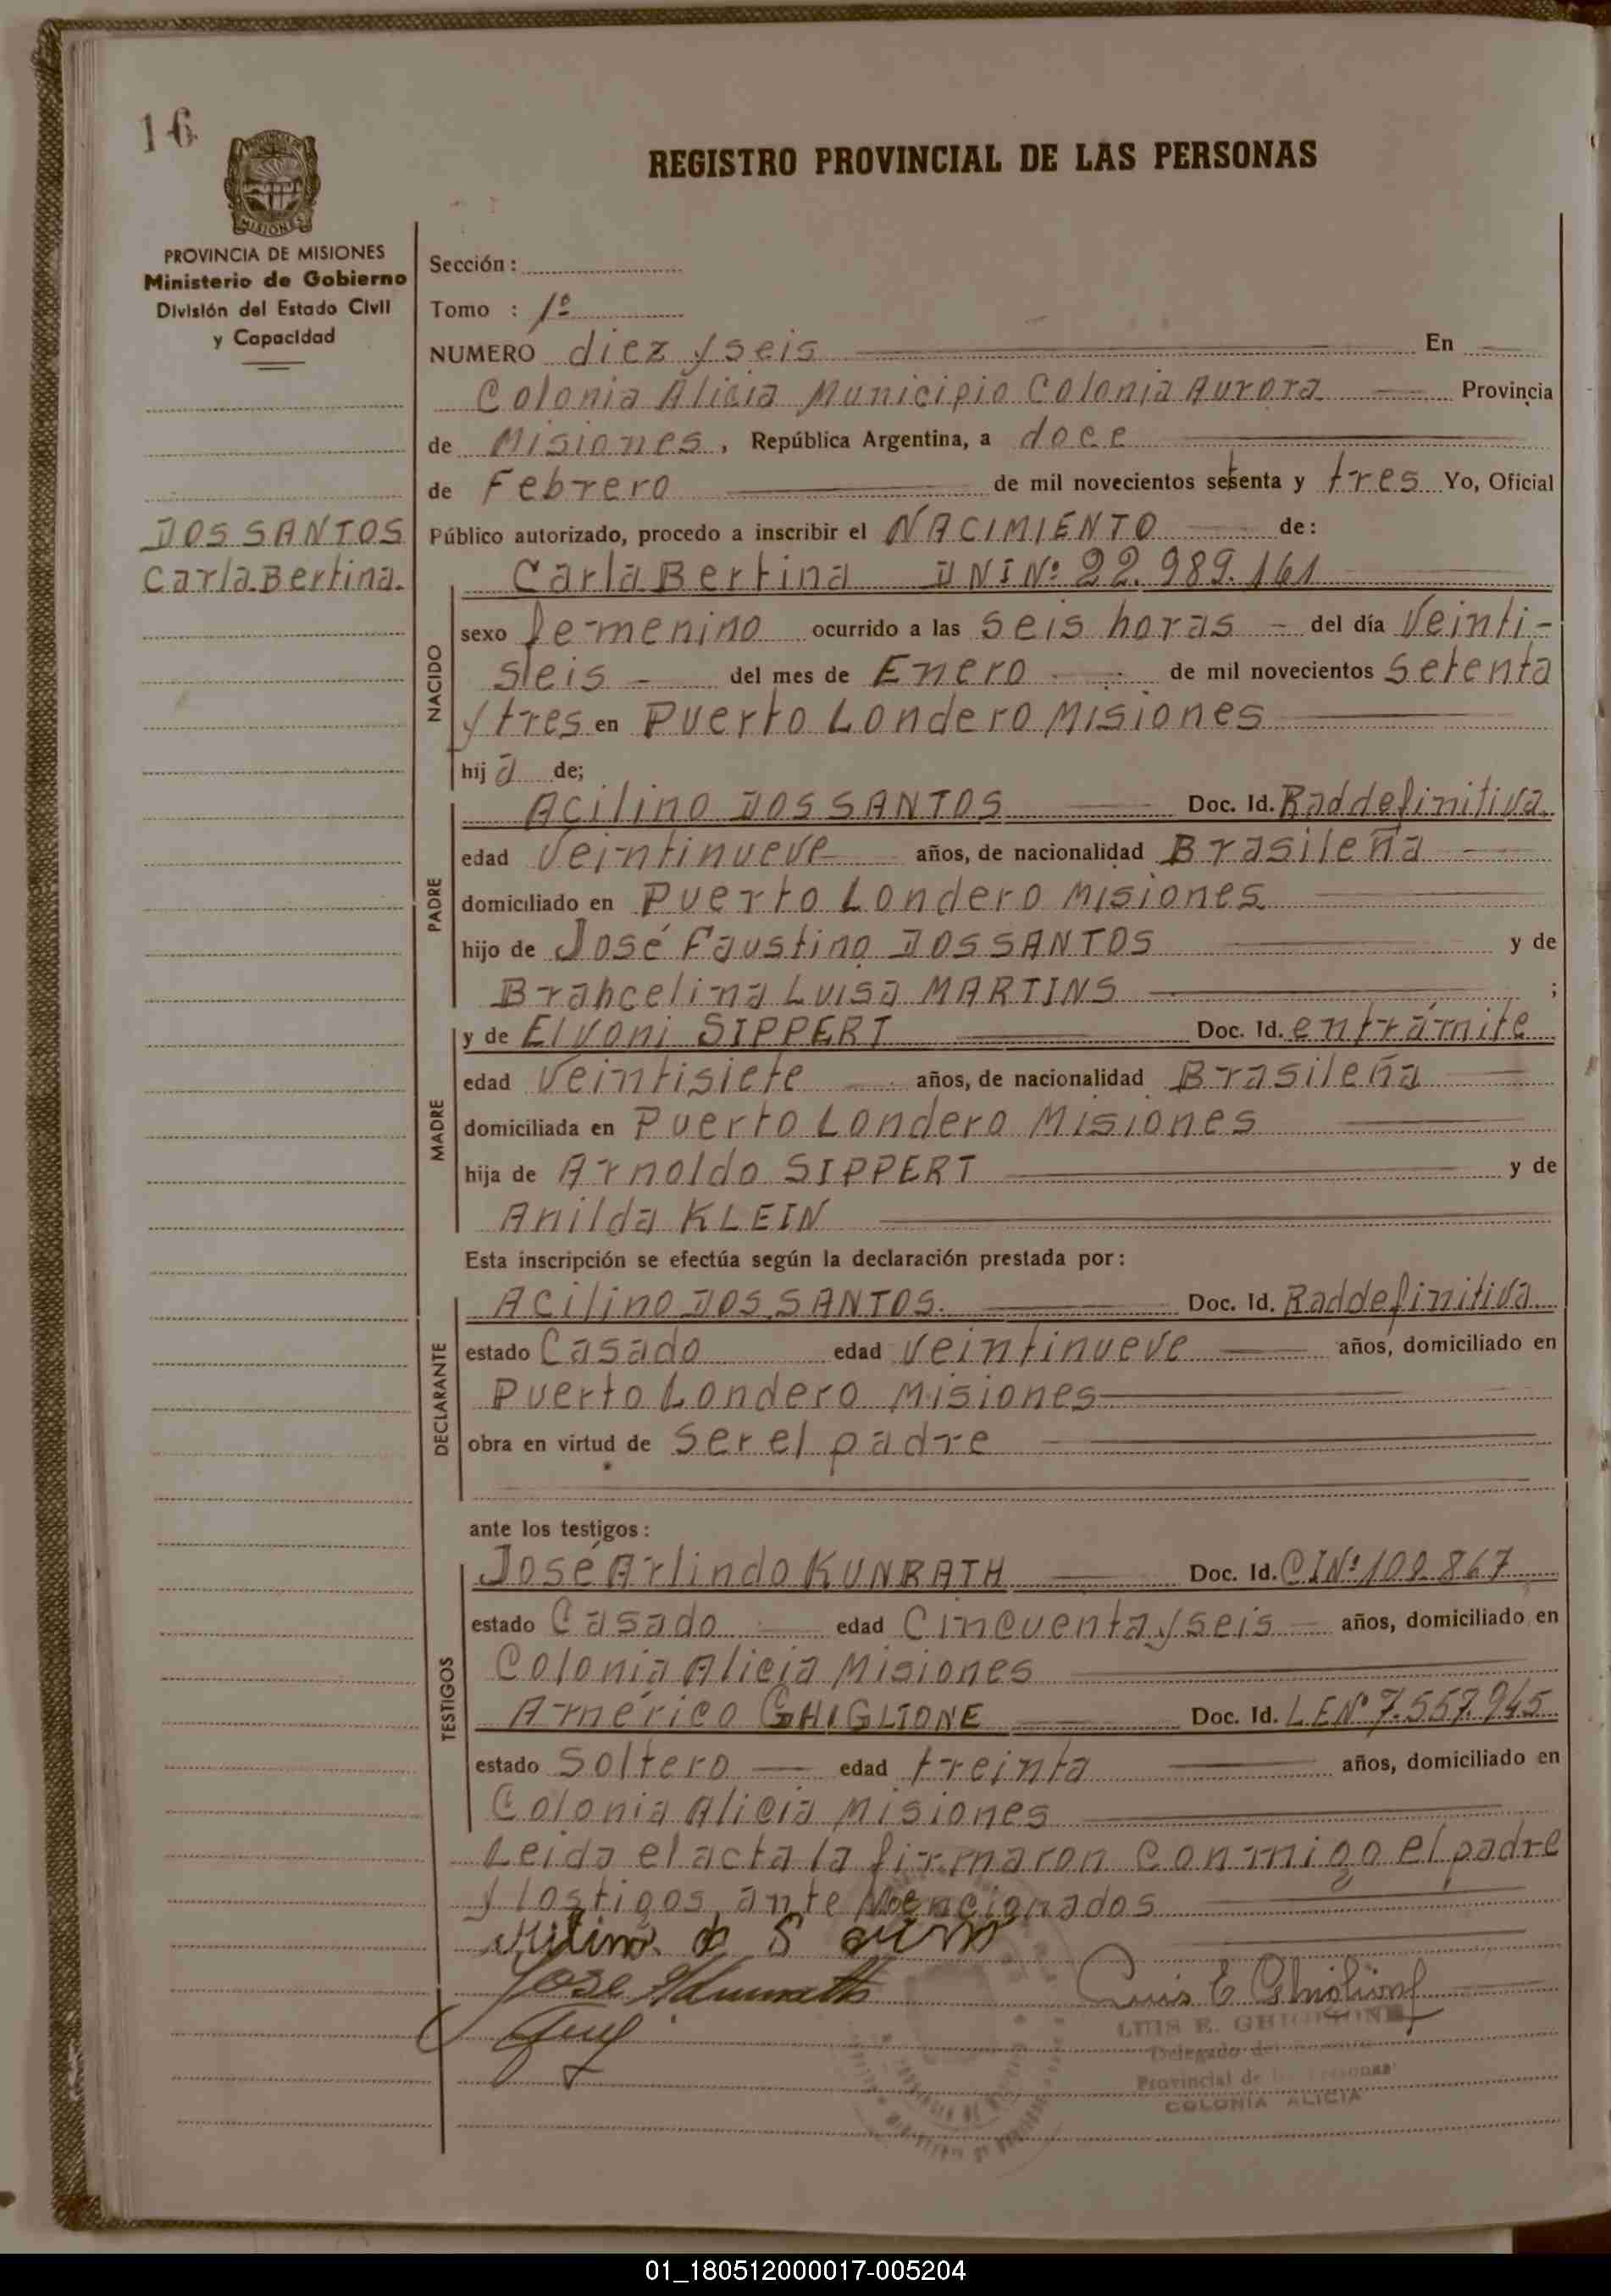 16
REGISTRO PROVINCIAL DE LAS PERSONAS
PROVINCIA DE MISIONES
Ministerio de Gobierno
División del Estado Civil
y Capacidad
DOS SANTOS
Carla Bertina.
Sección:
Tomo : 1º
NUMERO diez y seis En
Colonia Alicia Municipio Colonia Aurora Provincia
de Misiones, República Argentina, a doce
de Febrero de mil novecientos setenta y tres Yo, Oficial
Público autorizado, procedo a inscribir el NACIMIENTO de:
NACIDO
Carla Bertina DNI Nº 22.989.161
sexo femenino ocurrido a las seis horas - del día Veinti-
seis del mes de Enero de mil novecientos Setenta
y tres en Puerto Londero Misiones
hija de;
PADRE
Acilino DOS SANTOS Doc. Id. Raddefinitiva.
edad Veintinueve años, de nacionalidad Brasileña
domiciliado en Puerto Londero Misiones
hijo de José Faustino DOS SANTOS y de
Brancelina Luisa MARTINS ;
MADRE
y de Elvoni SIPPERT Doc. Id. en trámite
edad Veintisiete años, de nacionalidad Brasileña
domiciliada en Puerto Londero Misiones
hija de Arnoldo SIPPERT y de
Anilda KLEIN
Esta inscripción se efectúa según la declaración prestada por:
DECLARANTE
Acilino DOS SANTOS. Doc. Id. Raddefinitiva
estado Casado edad veintinueve años, domiciliado en
Puerto Londero Misiones
obra en virtud de ser el padre
ante los testigos:
TESTIGOS
José Arlindo KUNRATH Doc. Id. CI Nº 109.867
estado Casado edad Cincuenta y seis años, domiciliado en
Colonia Alicia Misiones
Américo GHIGLIONE Doc. Id. LE Nº 7.557.945
estado Soltero edad treinta años, domiciliado en
Colonia Alicia Misiones
Leida el acta la firmaron conmigo el padre
y lostigos ante mencionados
Luis E Ghiglione
LUIS E. GHIGLIONE
Delegado del
Provincial de las Personas
COLONIA ALICIA
01_180512000017-005204